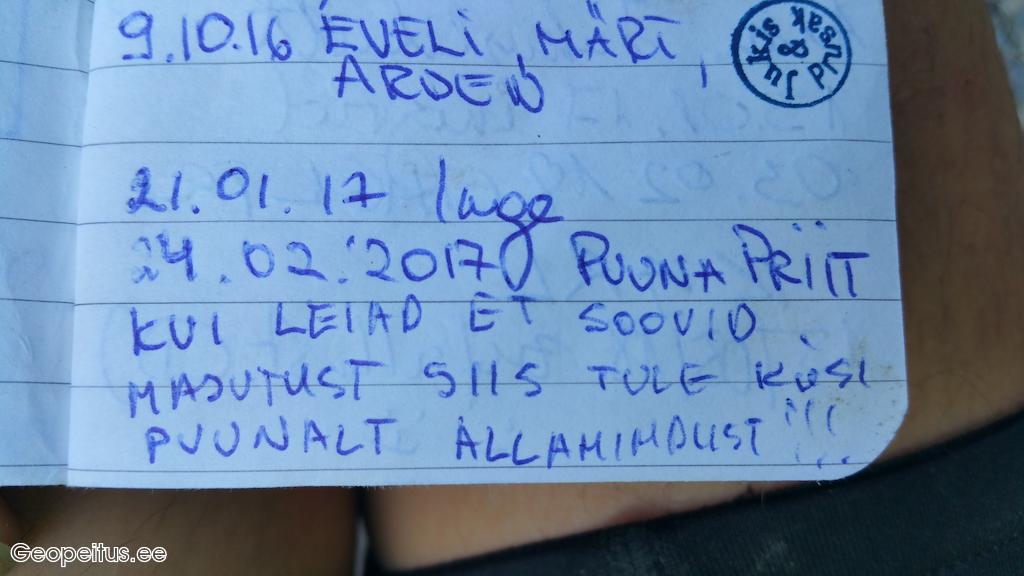 9.10.16 EVELI, MÄRT,
ARDEN
Jukis & prusak
21.01.17 luge
24.02.2017 PUUNA PRIIT
KUI LEIAD ET SOOVID
MAJUTUST SIIS TULE KÜSI
PUUNALT ALLAHINDUST!!!
Geopeitus.ee